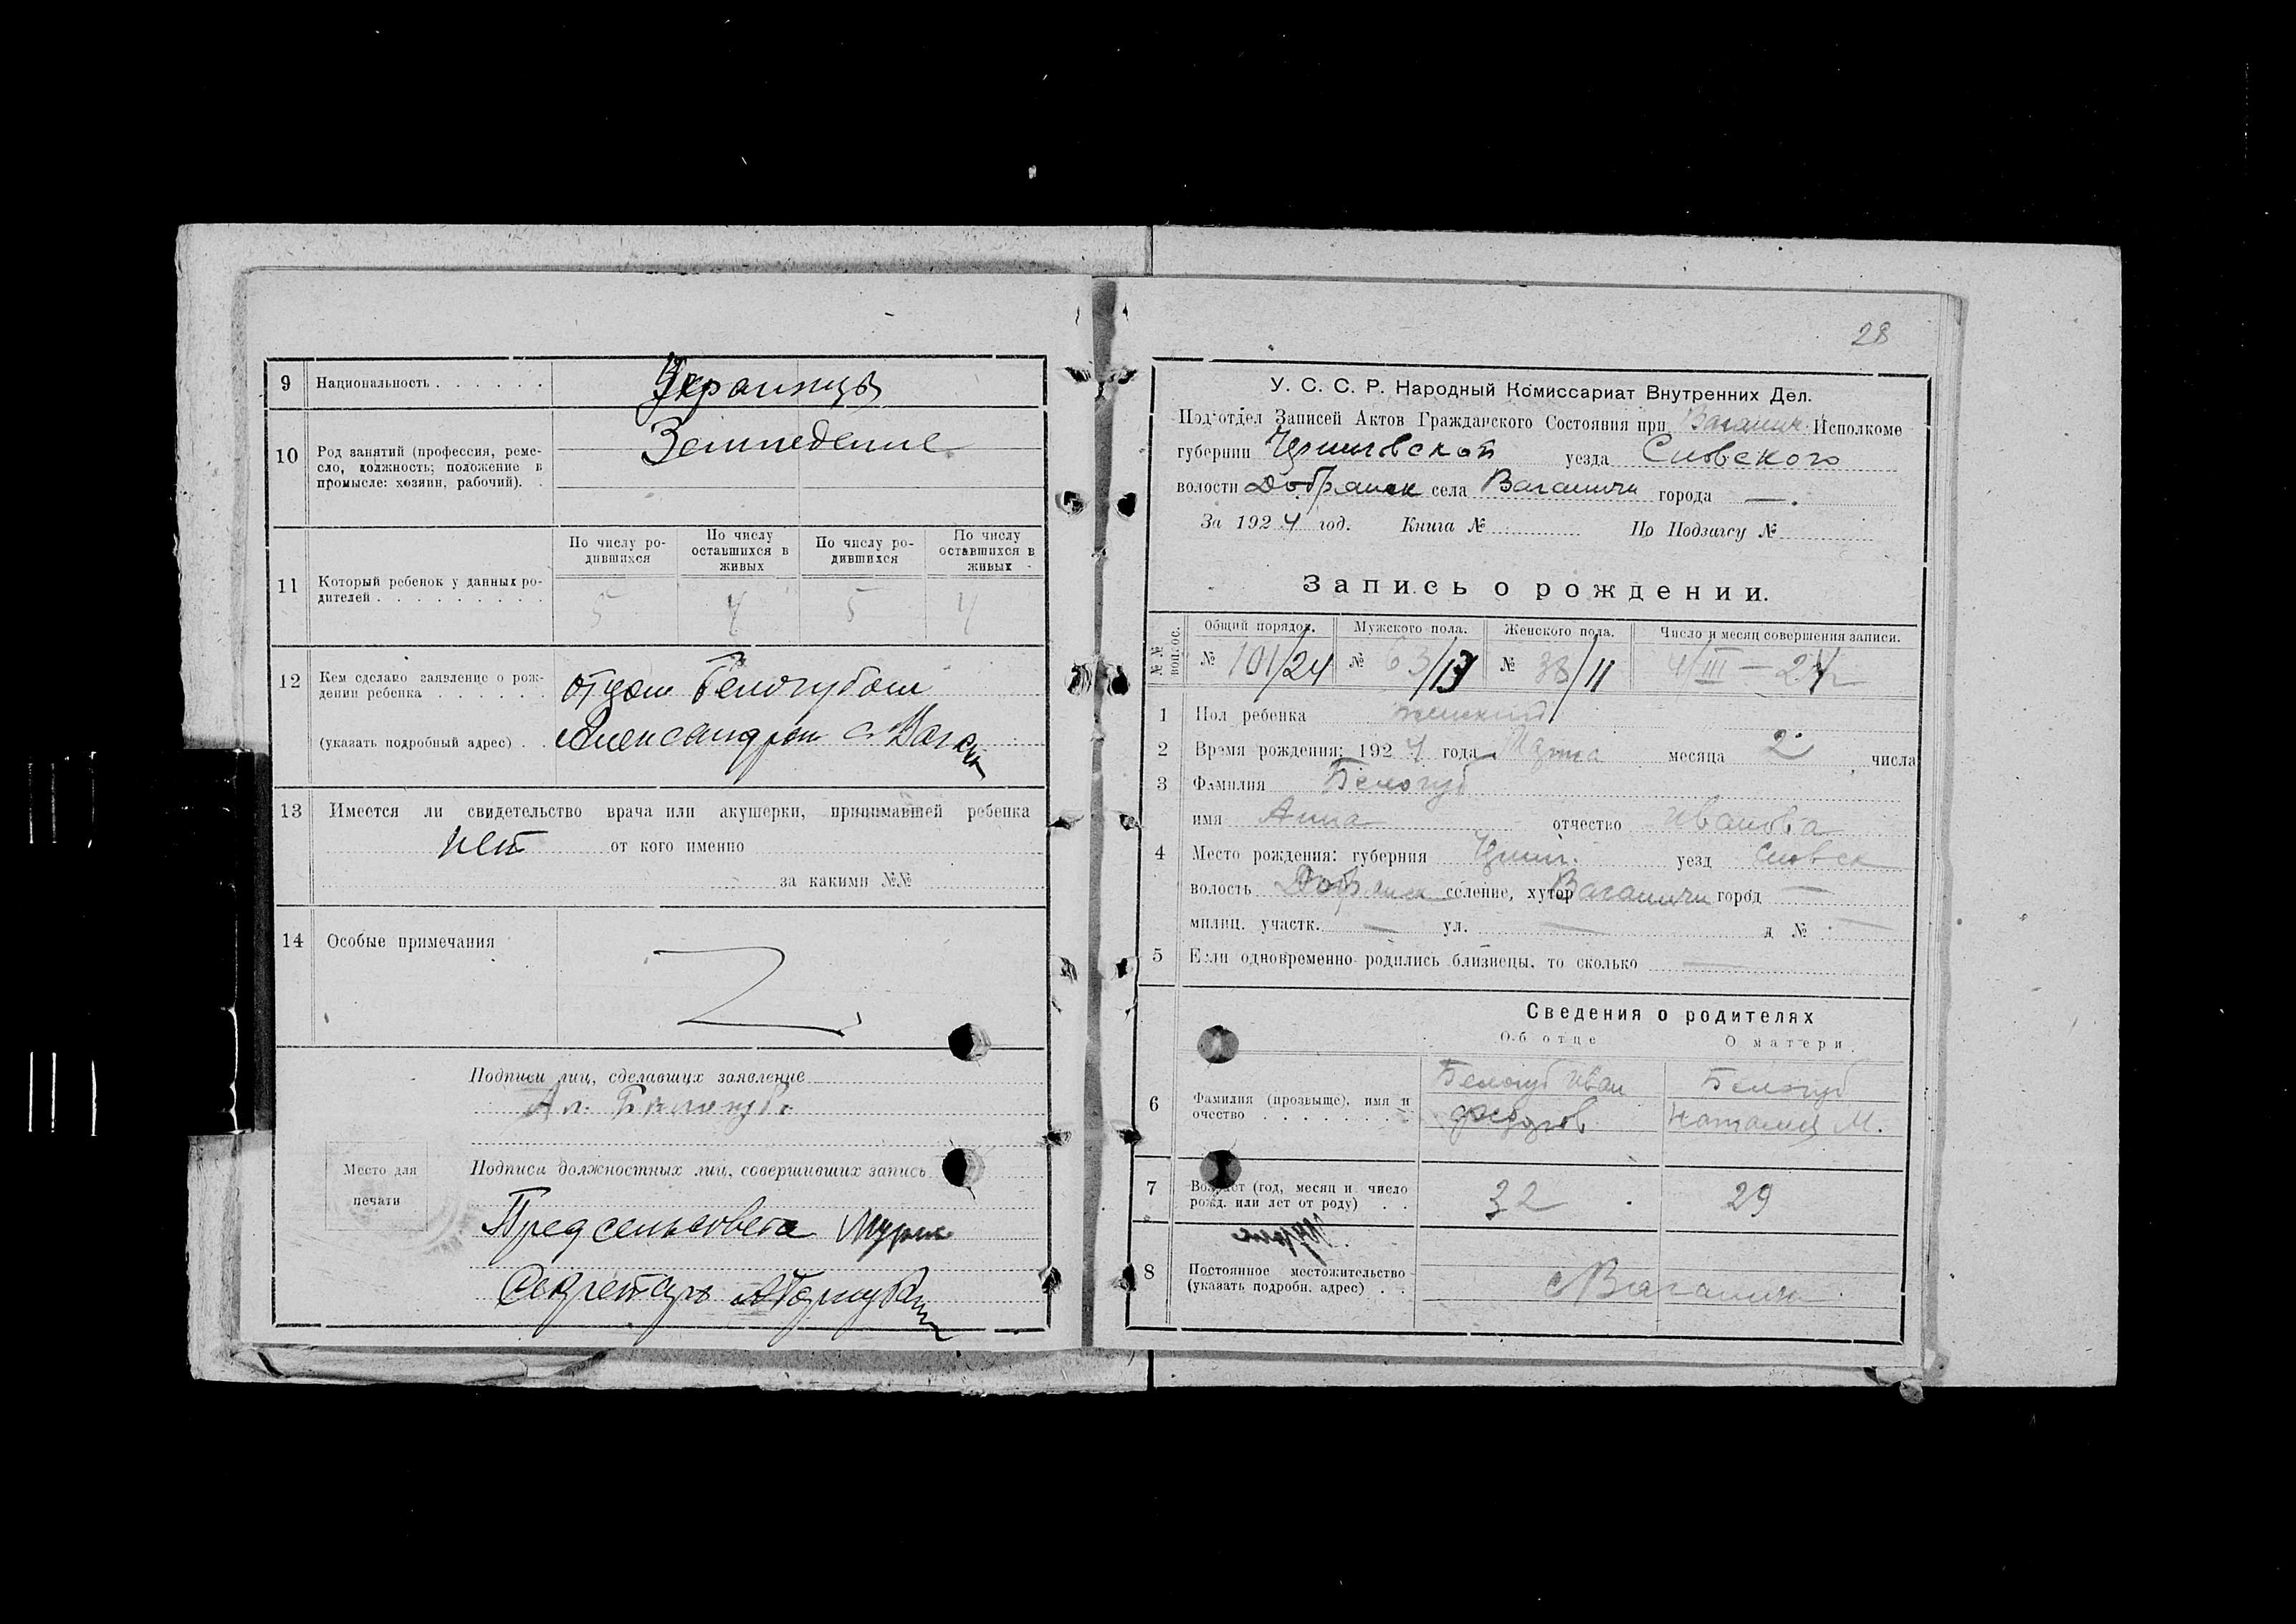 9 Национальность . . . . . . Украинцы
10 Род занятий (профессия, реме-
сло, должность; положение в
промысле: хозяин, рабочий). .
Земледелие
11 Который ребенок у данных ро-
дителей . . . . . . . . .
По числу ро-
дившихся
По числу
оставшихся в
живых
По числу ро-
дившихся
По числу
оставшихся в
живых
5 4 5 4
12 Кем сделано заявление о рож-
дении ребенка . . . . . . отцом Белогубом
(указать подробный адрес) . . Александром с
13 Имеется ли свидетельство врача или акушерки, принимавшей ребенка
нет от кого именно
за какими №№
14 Особые примечания
Подписи лиц, сделавших заявление
Ал. Белогуб
Место для
печати
Подписи должностных лиц, совершивших запись
Пред сельсовета
Секретарь
28
У. С. С. Р. Народный Комиссариат Внутренних Дел.
Под'отдел Записей Актов Гражданского Состояния при Ваганич Исполкоме
губернии Черниговской уезда Сновского
волости Добрянск села Ваганичи города —.
За 1924 год. Книга № По Подзагсу №
Запись о рождении.
№ №
вопрос.
Общий порядок. Мужского пола. Женского пола. Число и месяц совершения записи.
№ 101/24 № 63/13 № 38/11 4/III — 24 г
1 Пол ребенка женский
2 Время рождения: 1924 года Марта месяца 2 числа
3 Фамилия Белогуб
имя Анна отчество Иванова
4 Место рождения: губерния Черниг. уезд Сновск
волость Добрянск селение, хутор Ваганичи город —
милиц. участк. — ул. — д № —
5 Если одновременно родились близнецы, то сколько —
Сведения о родителях
Об отце О матери
6 Фамилия (прозвыще), имя и
очество . . . . . . . .
Белогуб Иван
Федоров
Белогуб
Наталия М.
7 Возраст (год, месяц и число
рожд. или лет от роду) . .
32 29
8 Постоянное местожительство
(указать подробн. адрес) . .
с Ваганичи